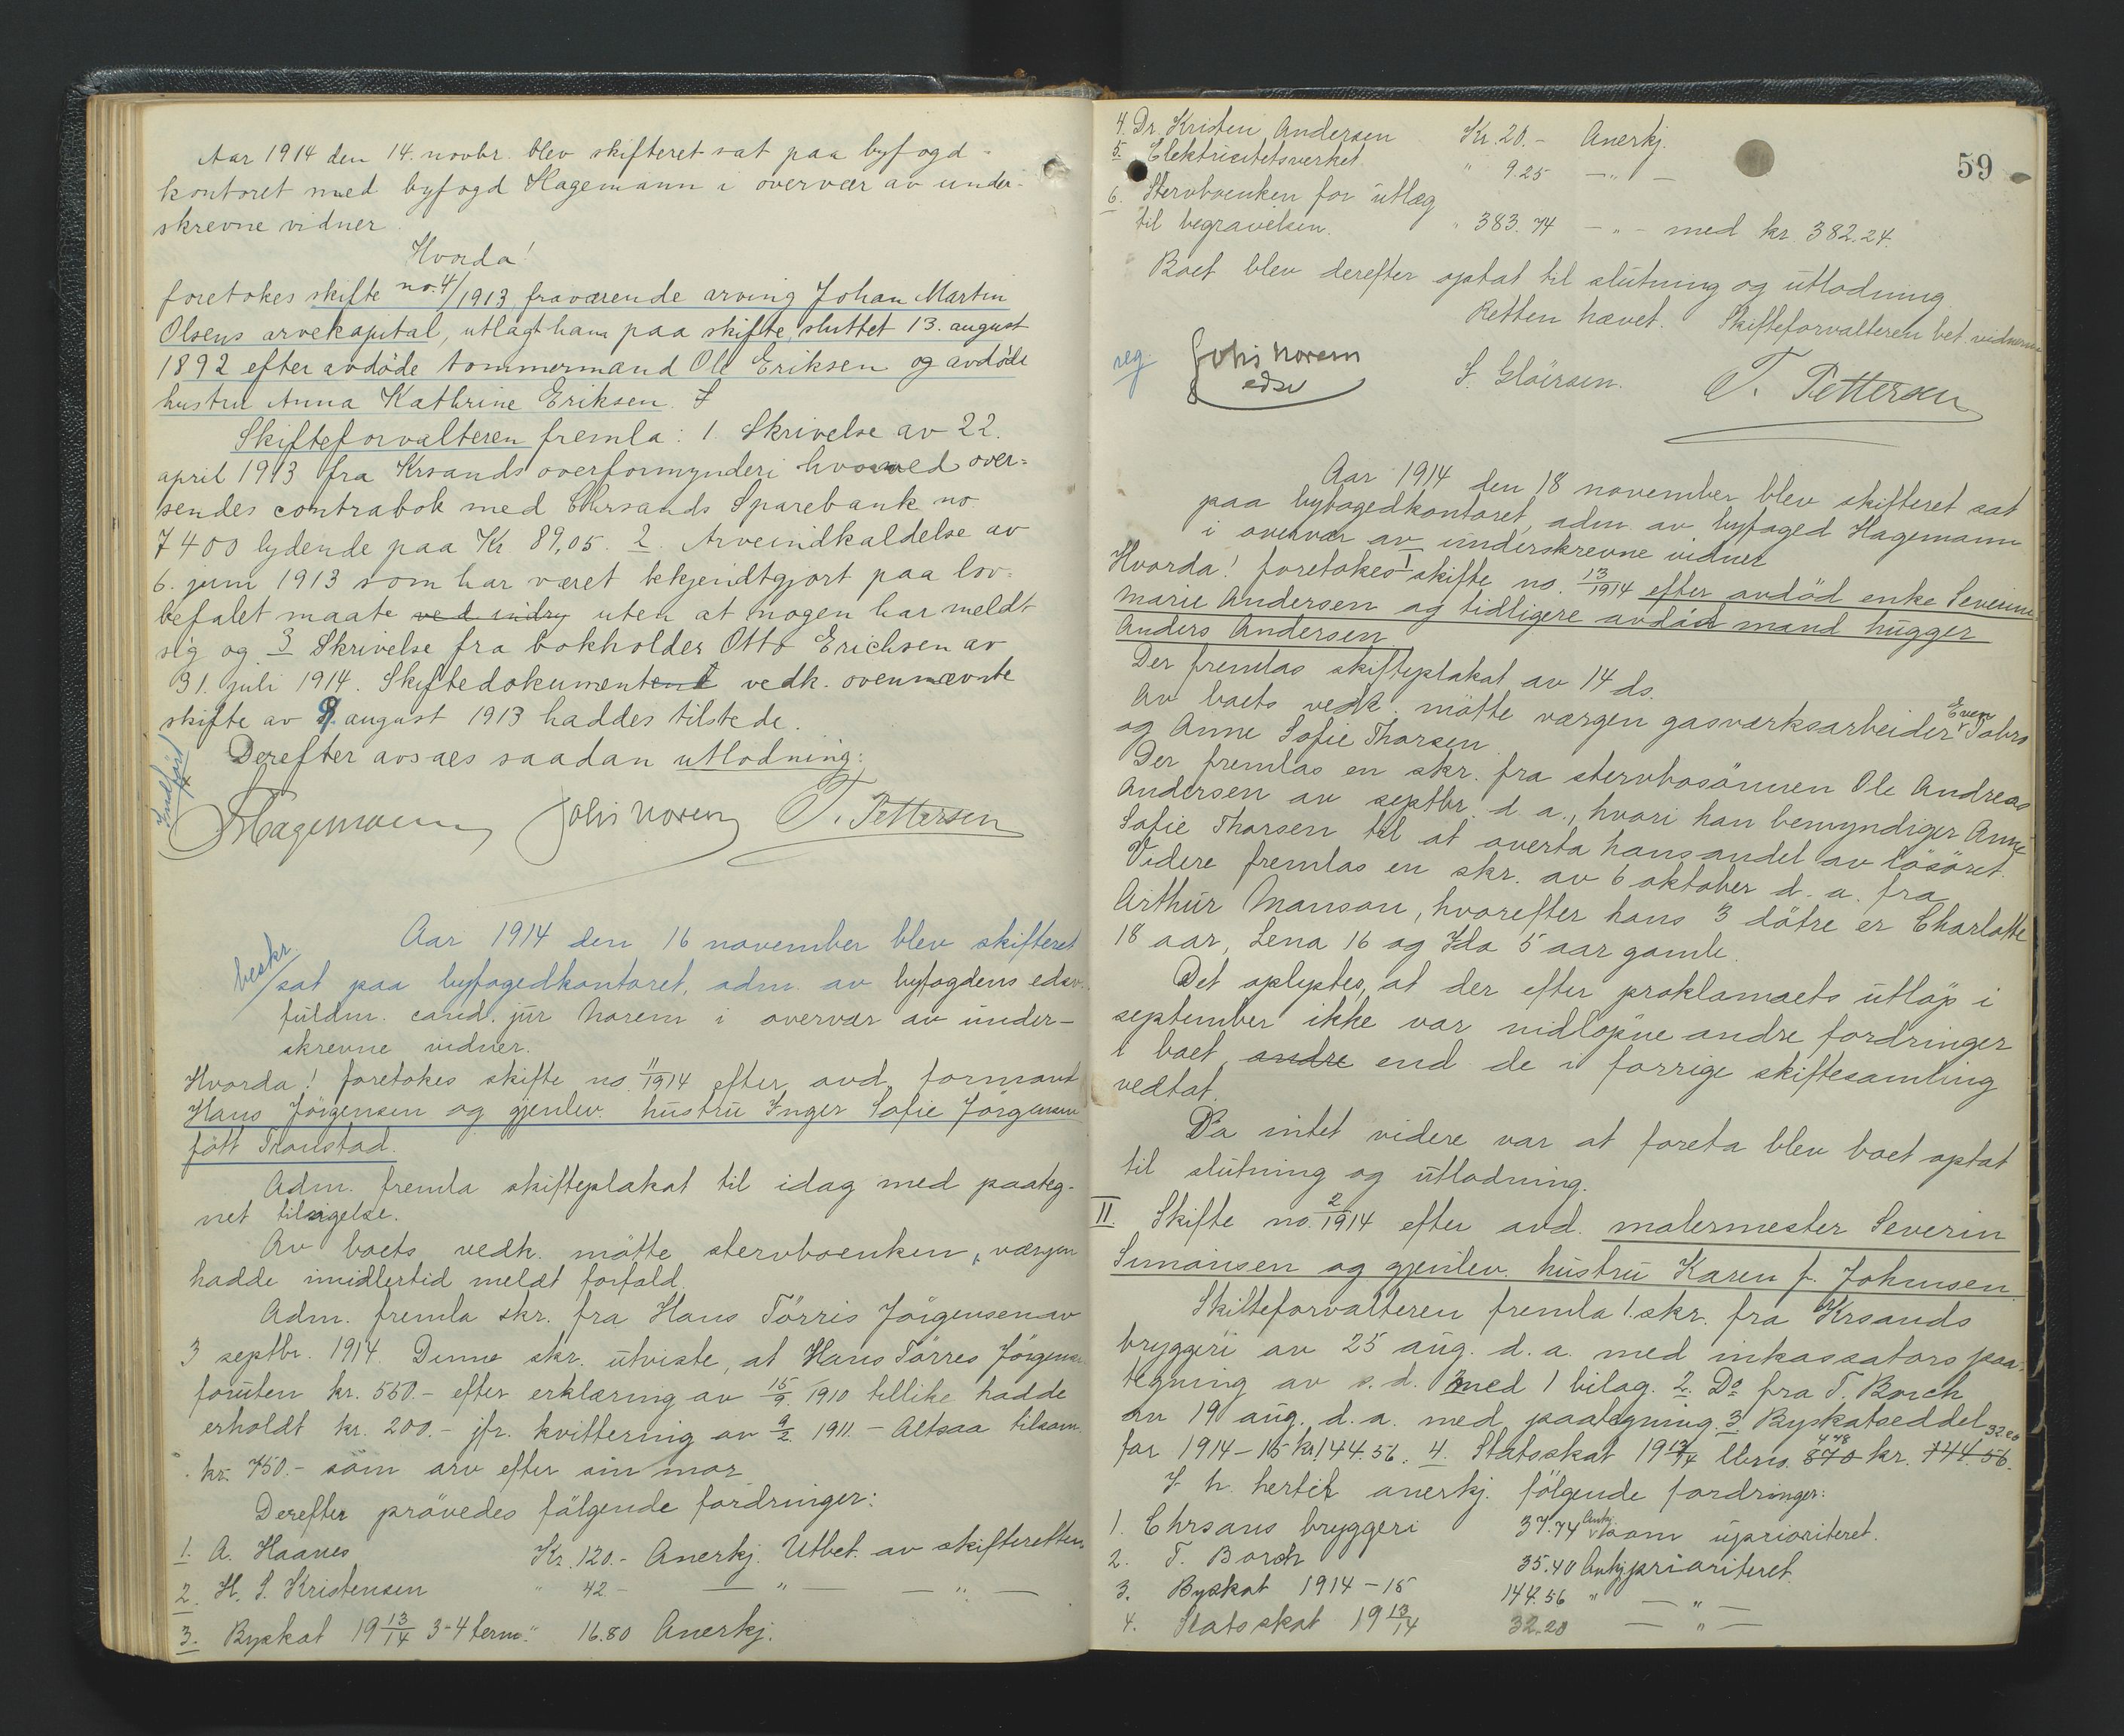 Aar 1914 den 14. novbr. blev skifteret sat paa byfogd-
kontoret med byfogd Hagemann i overvær av under-
skrevne vidner
Hvorda!
foretokes skifte no. 4/1913 fraværende arving Johan Martin
Olsens arvekapital, utlagt ham paa skifte, sluttet 13. august
1892 efter avdöde tømmermand Ole Eriksen og avdöde
hustru Anna Kathrine Eriksen.
Skifteforvalteren fremla: 1. Skrivelse av 22.
april 1913 fra Krsands overformynderi hvorved over-
sendes contrabok med Chrsands Sparebank no
7400 lydende paa Kr 89,05. 2. Arveindkaldelse av
6. juni 1913 som har været bekjendtgjort paa lov-
befalet maate ved indry uten at nogen har meldt
sig og 3 Skrivelse fra bokholder Otto Erichsen av
31. juli 1914. Skiftedokumentene vedk. ovennævnte
skifte av 9. august 1913 haddes tilstede.
Derefter avsaes saadan utlodning:
Indfört
Hagemann Johs Norem T. Pettersen
beskr.
Aar 1914 den 16 november blev skifteret
sat paa byfogedkontoret, adm. av byfogdens edsv.
fuldm. cand. jur Norem i overvær av under-
skrevne vidner.
Hvorda! foretokes skifte no. 11/1914 efter avd. formand
Hans Jörgensen og gjenlev. hustru Inger Sofie Jörgensen
fött Tronstad.
Adm. fremla skifteplakat til idag med paateg-
net tilsigelse.
Av boets vedk. mötte stervboenken, værgen
hadde imidlertid meldt forfald.
Adm. fremla skr. fra Hans Törris Jörgensen av
3 septbr. 1914. Denne skr. utviste, at Hans Törres Jörgensen
foruten kr. 550.- efter erklæring av 15/9 1910 tillike hadde
erholdt kr. 200.- jfr. kvittering av 9/2 1911 - Altsaa tilsam.
kr. 750.- som arv efter sin mor
Derefter prövedes fölgende fordringer:
1. A. Haanes Kr. 120.- Anerkj. Utbet. av skifteretten
2. H. S. Kristensen " 42.- — " — — " —
3. Byskat 19 13/14 3-4 term. " 16.80 Anerkj.
59
4. Dr. Kristen Andersen Kr. 20.- Anerkj.
5. Elektricitetsverket " 9.25 — " —
6. Stervboenken for utlæg
til begravelsen. " 383.74 — " — med kr. 382.24.
Boet blev derefter optat til slutning og utlodning
Retten hævet. Skifteforvalteren bet. vidnerne
reg. Johs Norem S. Glörsen. T. Pettersen
edsv
Aar 1914 den 18 november blev skifteret sat
paa byfogedkontoret, adm. av byfoged Hagemann
i overvær av underskrevne vidner
Hvorda! foretokes I skifte no. 13/1914 efter avdöd enke Severine
Marie Andersen og tidligere avdöd mand hugger
Anders Andersen
Der fremlas skifteplakat av 14 ds.
Av boets vedk. mötte værgen gasværksarbeider Even
og Anne Sofie Thorsen
Der fremlas en skr. fra stervbosönnen Ole Andreas
Andersen av septbr. d. a., hvori han bemyndiger Anne
Sofie Thorsen til at overta hans andel av lösöret.
Videre fremlas en skr. av 6 oktober d. a. fra
Arthur Manson, hvorefter hans 3 dötre er Charlotte
18 aar, Lena 16 og Ida 5 aar gamle.
Det oplystes, at der efter proklamaets utlöp i
september ikke var indlöpne andre fordringer
i boet andre end de i forrige skiftesamling
vedtat.
Da intet videre var at foreta blev boet optat
til slutning og utlodning.
II. Skifte no. 2/1914 efter avd. malermester Severin
Simonsen og gjenlev. hustru Karen f. Johnsen.
Skifteforvalteren fremla 1. skr. fra Krsands
bryggeri av 25 aug. d. a. med inkassators paa-
tegning av s. d. med 1 bilag. 2. Do fra T. Borch
av 19 aug. d. a. med paategning. 3. Byskatseddel
for 1914-15 kr. 144.56. 4. Statsskat 19 13/14 870 kr. 144.56. 32.20
I h. hertil anerkj. fölgende fordringer:
1. Chrsans bryggeri 37.74 Ankj. som uprioriteret.
2. T. Borch 35.40 Ankj prioriteret.
3. Byskat 1914-15 144.56 " — " —
4. Statsskat 19 13/14 32.20 — " —